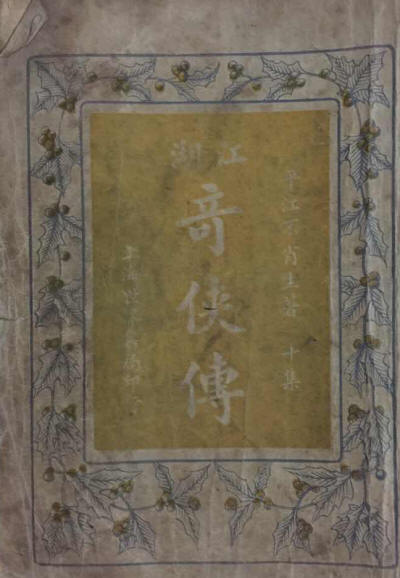 平江不肖生著 十集
江湖
奇俠傳
上海世界書局印